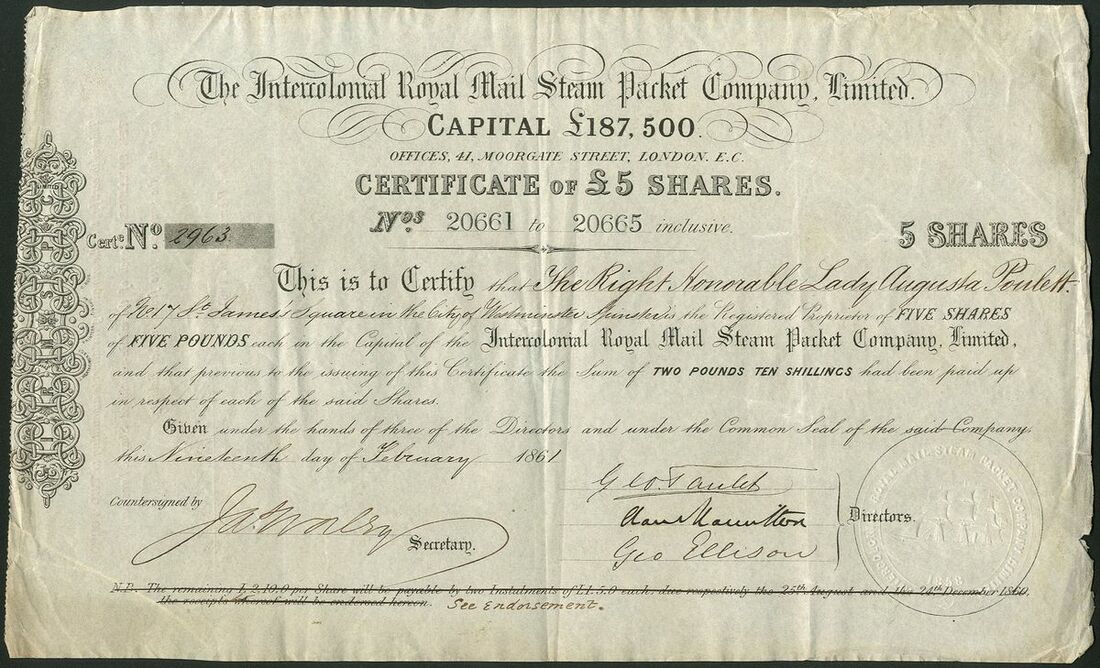 The Intercolonial Royal Mail Steam Packet Company, Limited.
CAPITAL £187,500.
OFFICES, 41, MOORGATE STREET, LONDON. E.C.
CERTIFICATE OF £5 SHARES.
Nos 20661 to 20665 inclusive.
Certe No. 2963.
5 SHARES
This is to Certify that The Right Honorable Lady Augusta Poulett.
of No 17 St James' Square in the City of Westminster is the Registered Proprietor of FIVE SHARES
of FIVE POUNDS each in the Capital of the Intercolonial Royal Mail Steam Packet Company, Limited,
and that previous to the issuing of this Certificate the Sum of TWO POUNDS TEN SHILLINGS had been paid up
in respect of each of the said Shares.
Given under the hands of three of the Directors and under the Common Seal of the said Company,
this Nineteenth day of February 1861
Countersigned by
Secretary.
Geo
Geo Ellison
Directors.
ROYAL MAIL STEAM PACKET COMPANY LIMITED
1858
N.B. The remaining £2.10.0 per Share will be payable by two Instalments of £1.5.0 each, due respectively the 25th August and the 24th December 1860,
the receipts thereof will be endorsed hereon. See Endorsement.